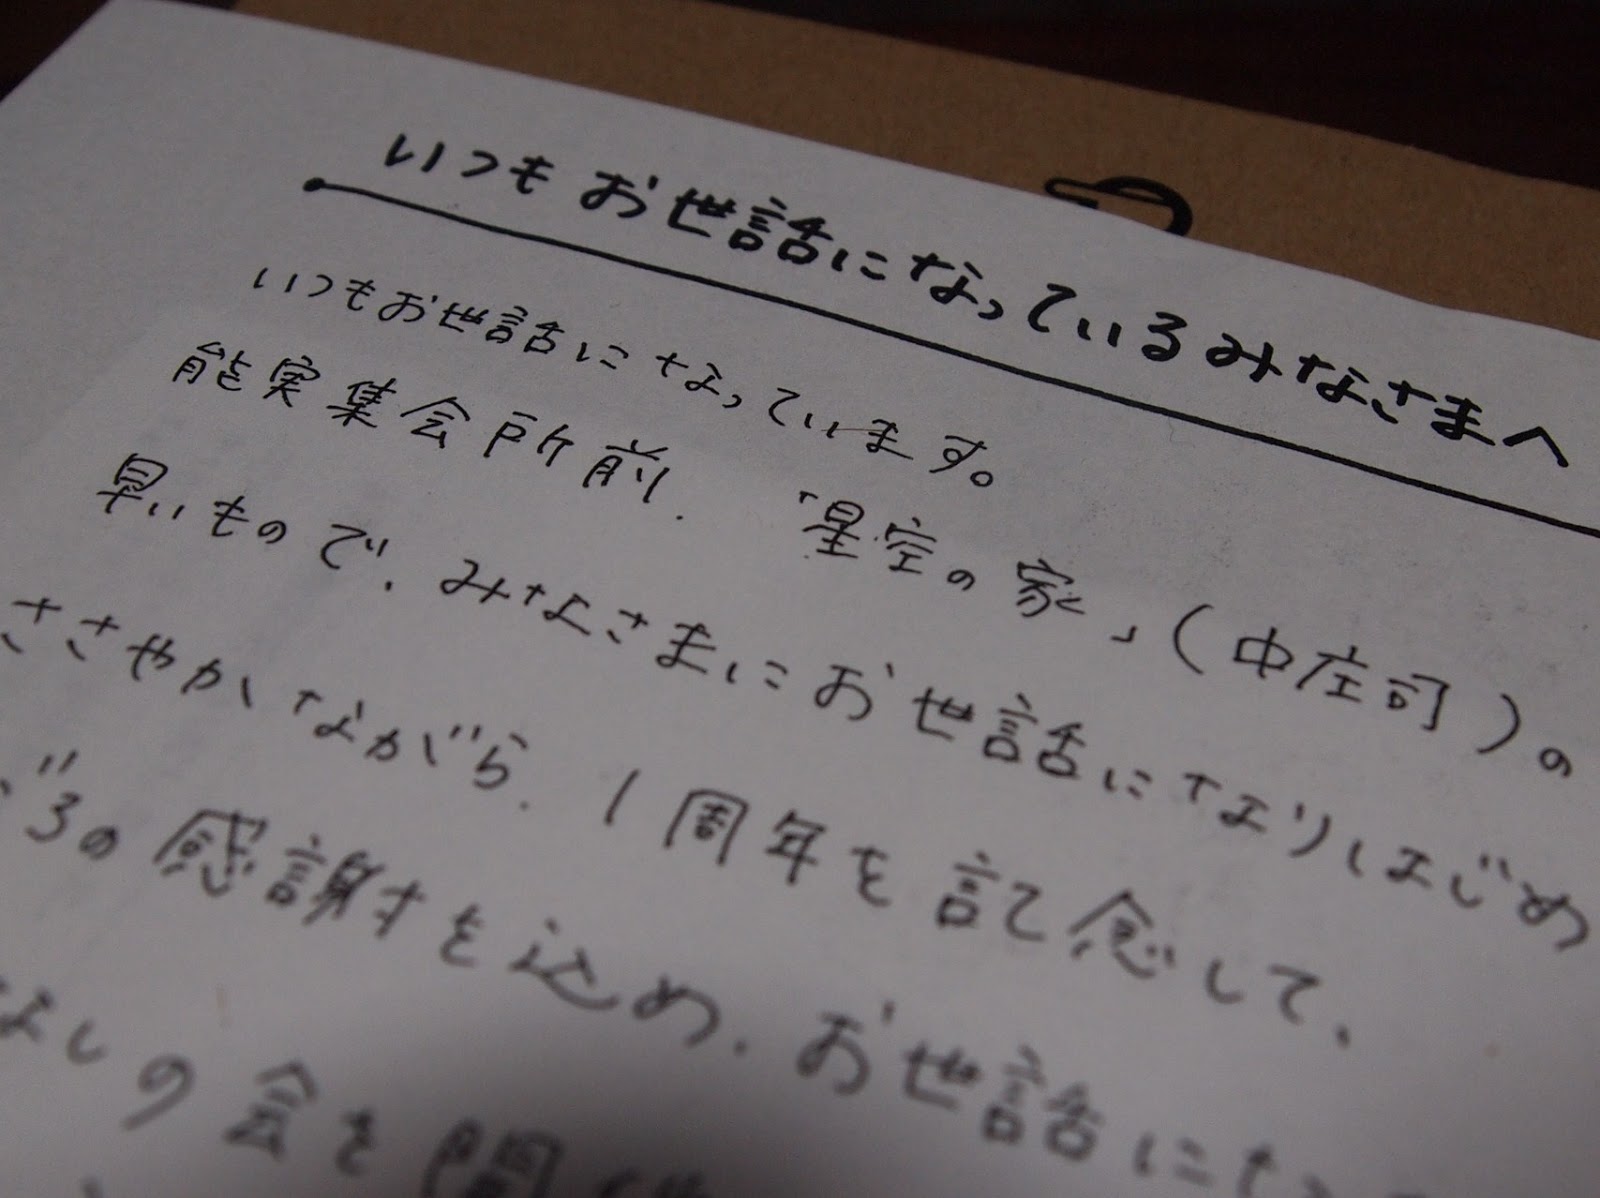 いつもお世話になっているみなさまへ
いつもお世話になっています。
能実集会所前、「星空の家」(中庄司)の
早いもので、みなさまにお世話になりはじめ
ささやかながら、1周年を記念して、
ろの感謝を込め、お世話にな
しの会を開